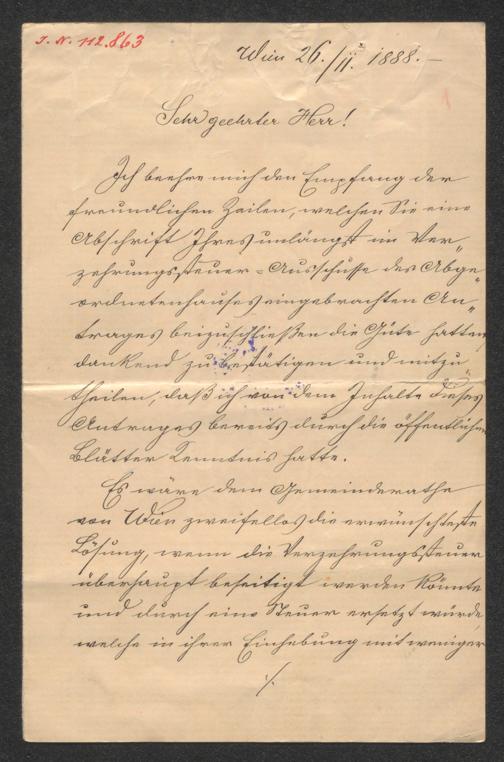 J. N. 112.863
Wien 26./II. 1888.–
Sehr geehrter Herr!
Ich beehre mich den Empfang der
freundlichen Zeilen, welchen Sie eine
Abschrift Ihres unlängst im Ver„
zehrungssteuer-Ausschusse des Abge„
ordnetenhauses eingebrachten An„
trages beizuschließen die Güte hatten
dankend zu bestätigen und mitzu„
theilen, daß ich von dem Inhalte dieses
Antrages bereits durch die öffentlichen
Blätter Kenntnis hatte.
Es wäre dem Gemeinderathe
von Wien zweifellos die erwünschteste
Lösung, wenn die Verzehrungssteuer
überhaupt beseitigt werden könnte
und durch eine Steuer ersetzt würde,
welche in ihrer Einhebung mit weniger
./.